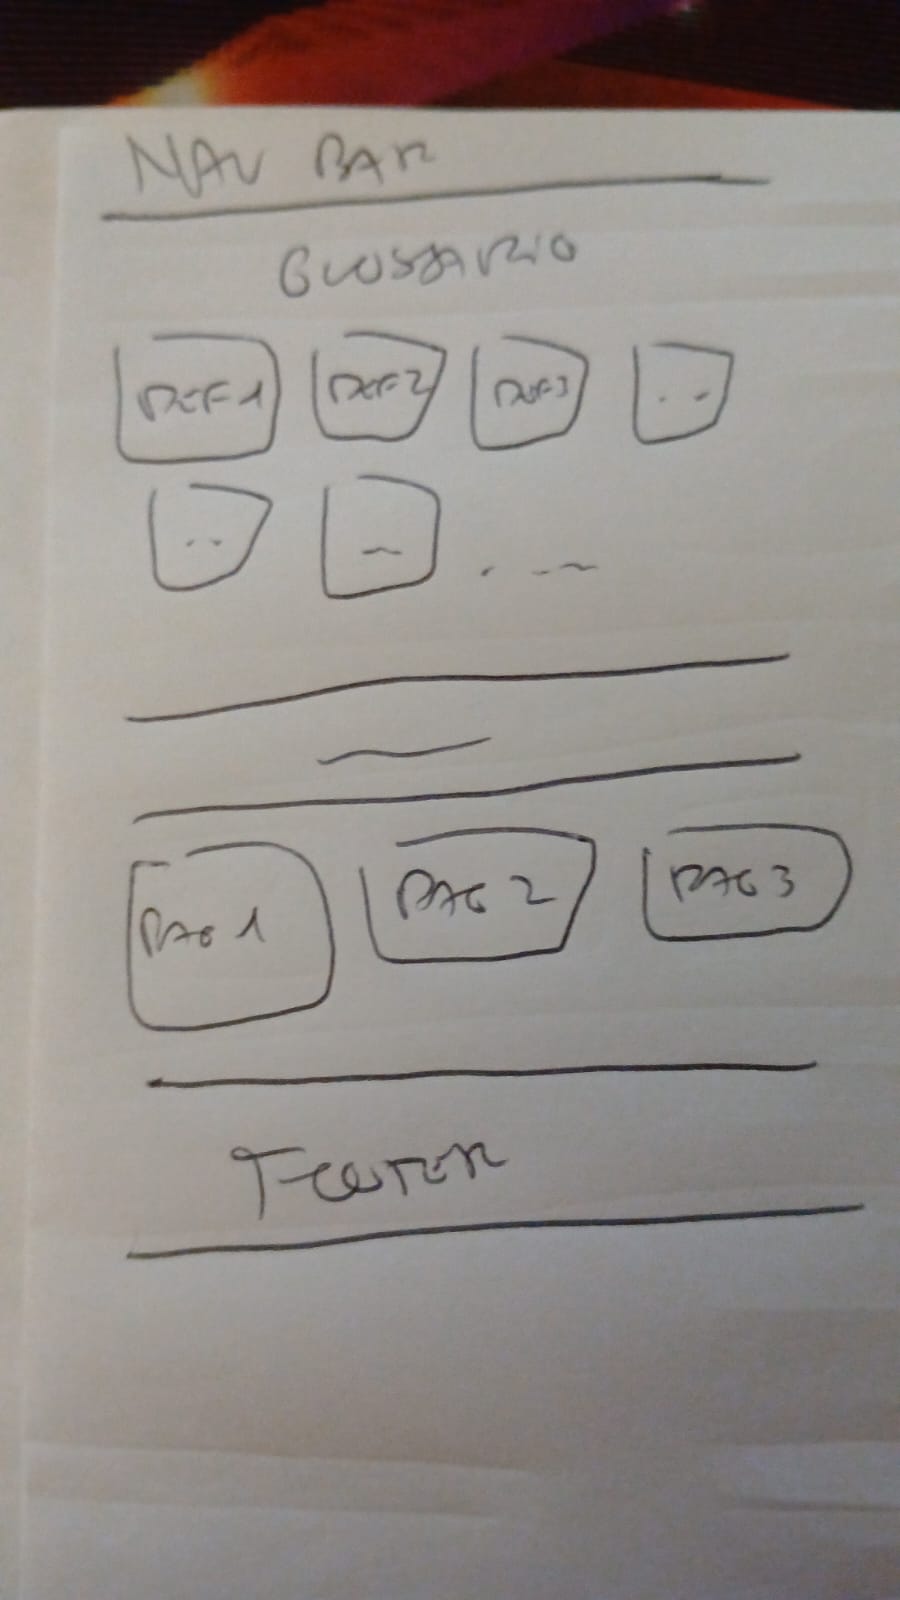 NAV BAR
GLOSSARIO
DEF1 DEF2 DEF3 ..
.. –
. -- ~
PAG 1 PAG 2 PAG 3
FOOTER